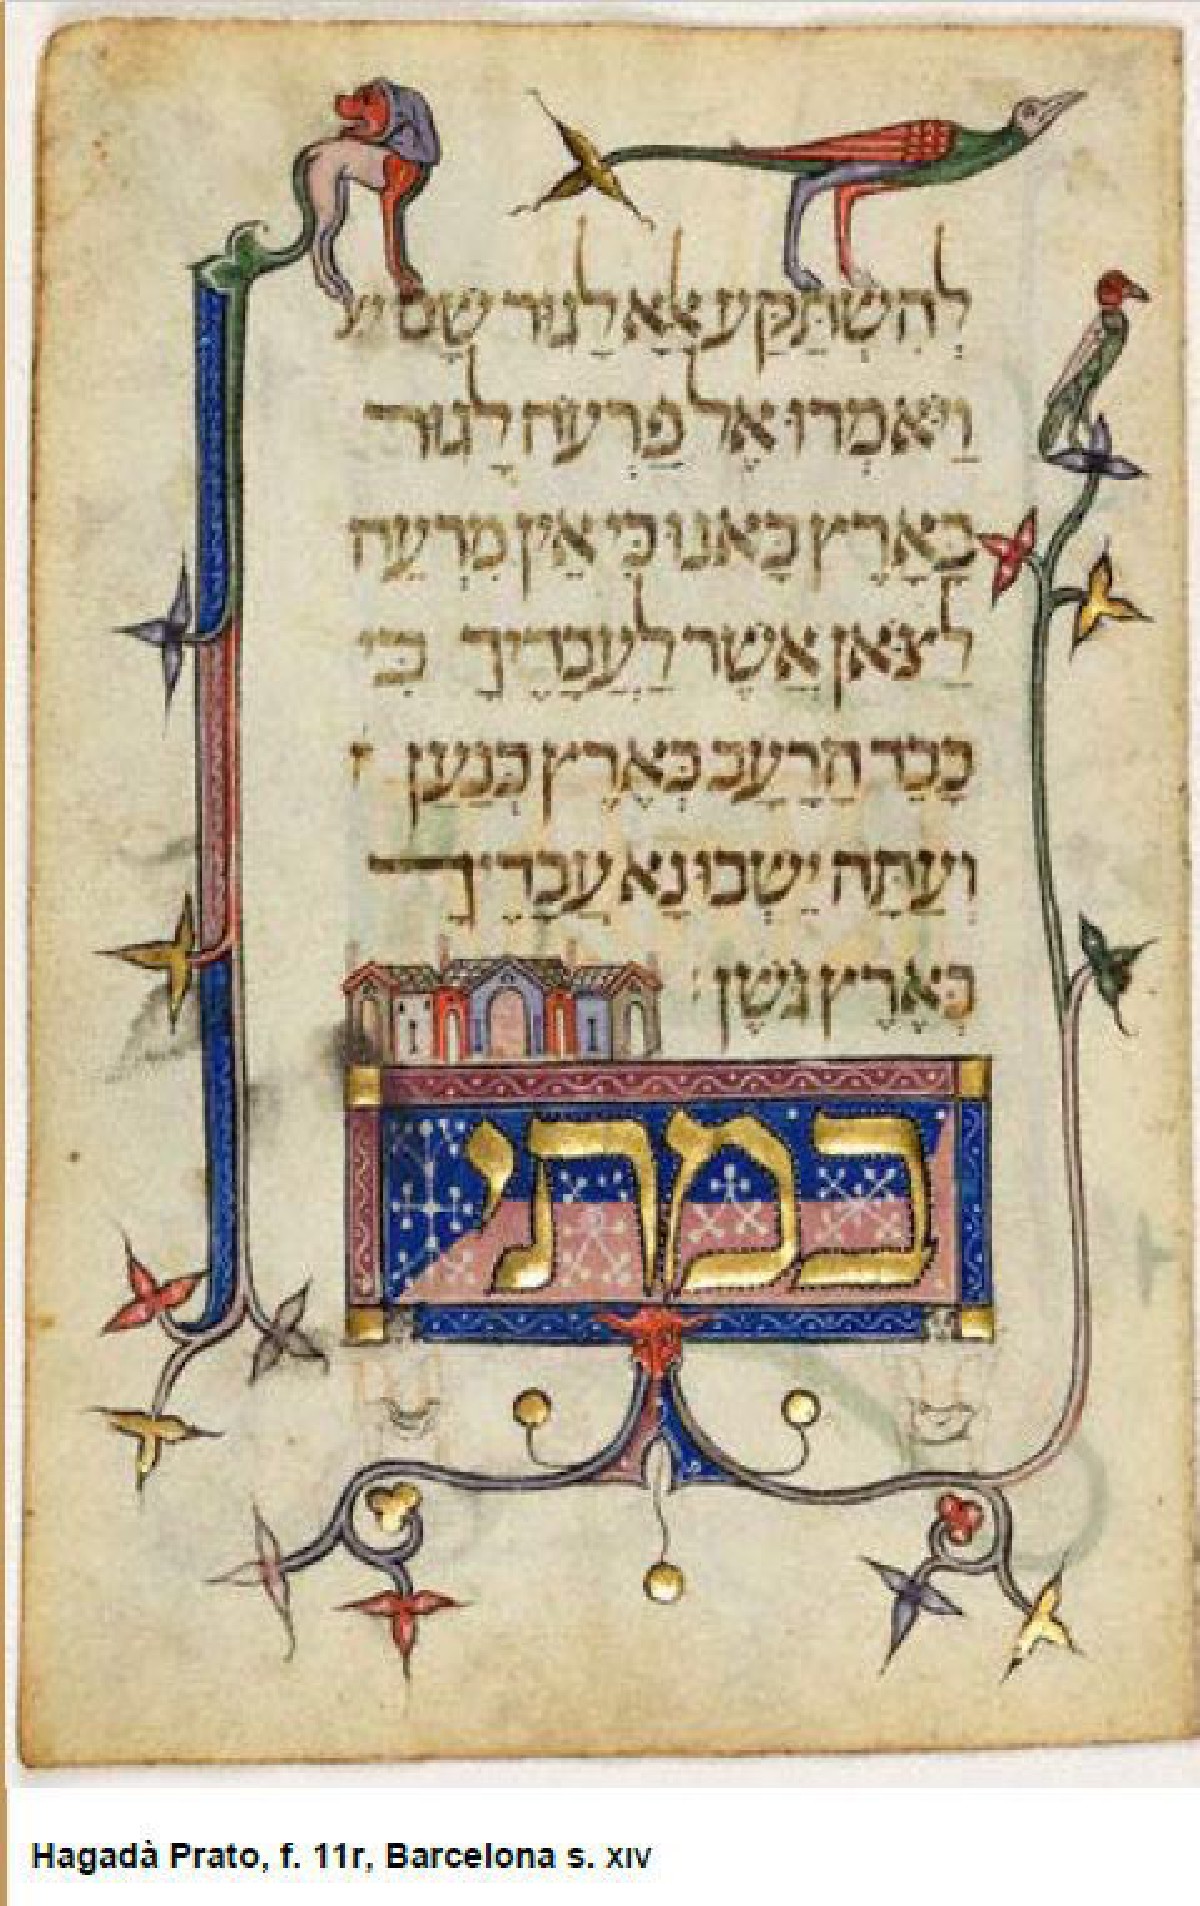 לְהִשְׁתַּקֵּעַ אֶלָּא לָגוּר שָׁם
וַיֹּאמְרוּ אֶל פַּרְעֹה לָגוּר
בָּאָרֶץ בָּאנוּ כִּי אֵין מִרְעֶה
לַצֹּאן אֲשֶׁר לַעֲבָדֶיךָ כִּי
כָבֵד הָרָעָב בְּאֶרֶץ כְּנַעַן ו
וְעַתָּה יֵשְׁבוּ נָא עֲבָדֶיךָ
בְּאֶרֶץ גֹּשֶׁן׃
במתי
Hagadà Prato, f. 11r, Barcelona s. XIV